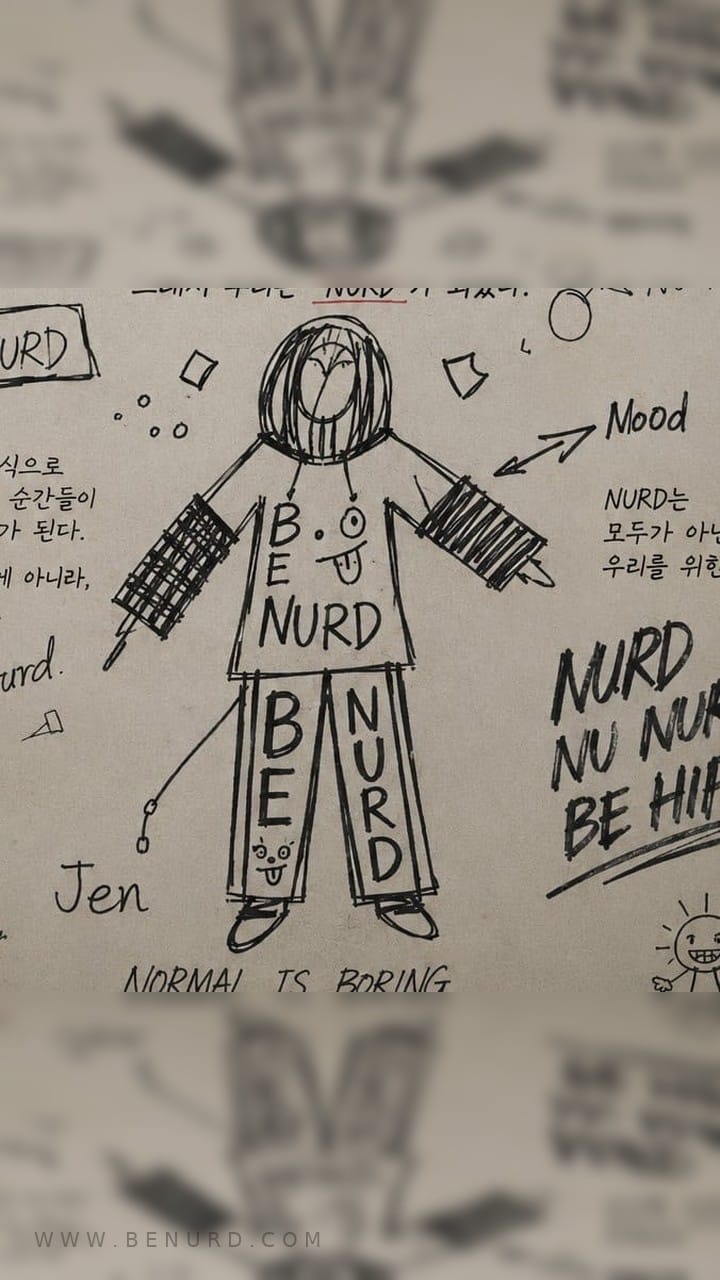 그래서 우리는 "NURD"가 되었다.
URD
Mood
식으로
순간들이
가 된다.
게 아니라,
NURD는
모두가 아닌
우리를 위한
B
E
NURD
urd.
NURD
NU NUR
BE HIP
BE
NURD
Jen
NORMAL IS BORING
WWW.BENURD.COM